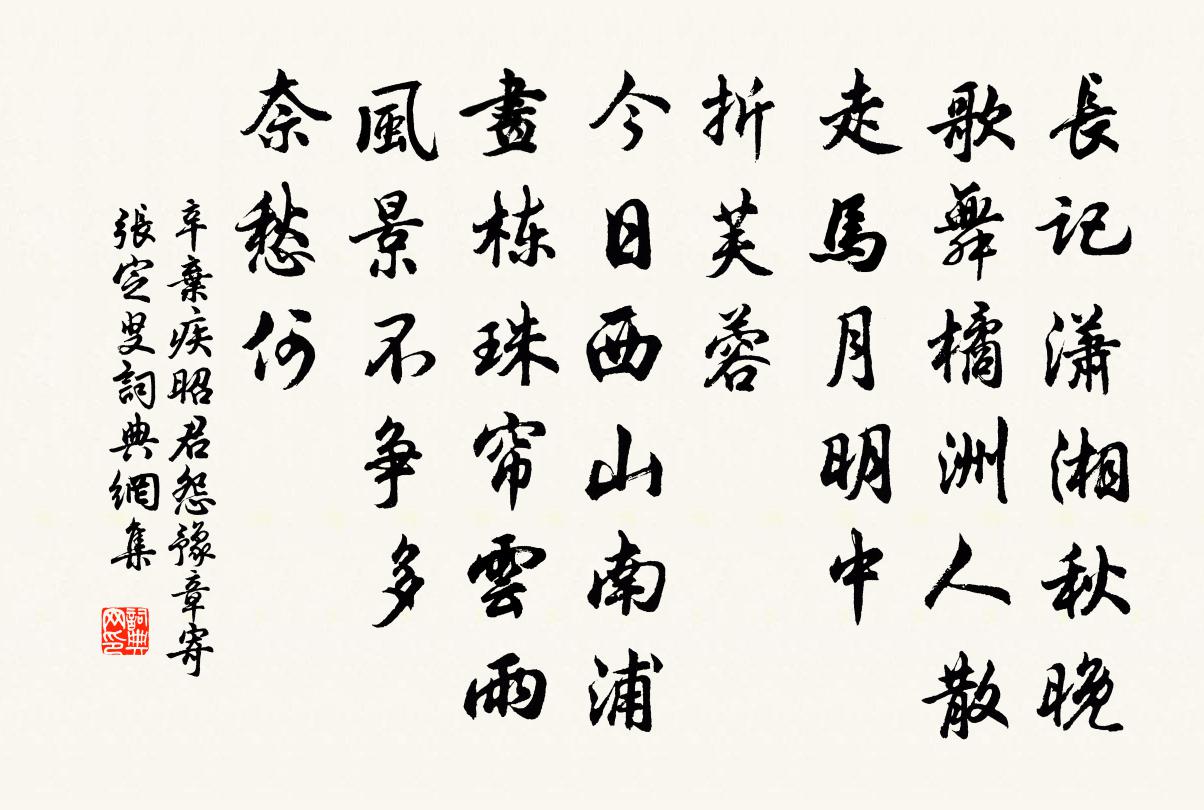 長記瀟湘秋晚
歌舞橘洲人散
走馬月明中
折芙蓉
今日西山南浦
畫栋珠帘雲雨
風景不争多
奈愁何
辛棄疾昭君怨豫章寄
張定叟詞典網集
詞典网印